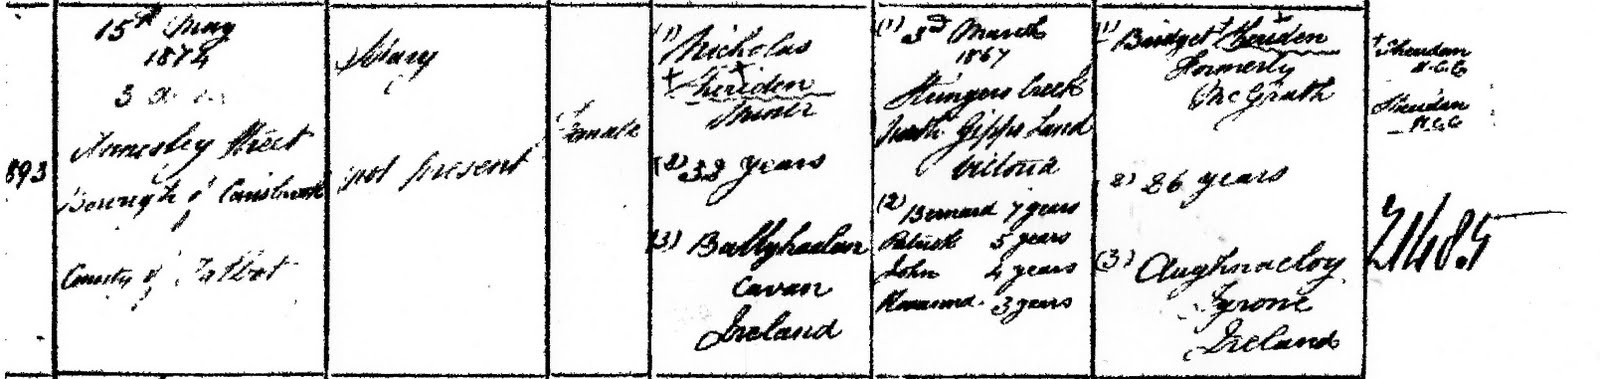 893
15th May
1874
3
Annesley Street
Borough of Carisbrook
County of Talbot
Mary
not present
Female
(1) Nicholas
+ Sheriden +
Miner
(2) 33 years
(3)
Cavan
Ireland
(1) 3rd March
1867
Stringers Creek
North Gipps Land
Victoria
(2) Bernard 7 years
Patrick 5 years
John 4 years
3 years
(1) Bridget + Sheriden +
Formerly
McGrath
(2) 26 years
(3) Aughnacloy
Tyrone
Ireland
+ Sheridan
H.C.G
Sheridan
H.C.G
21485